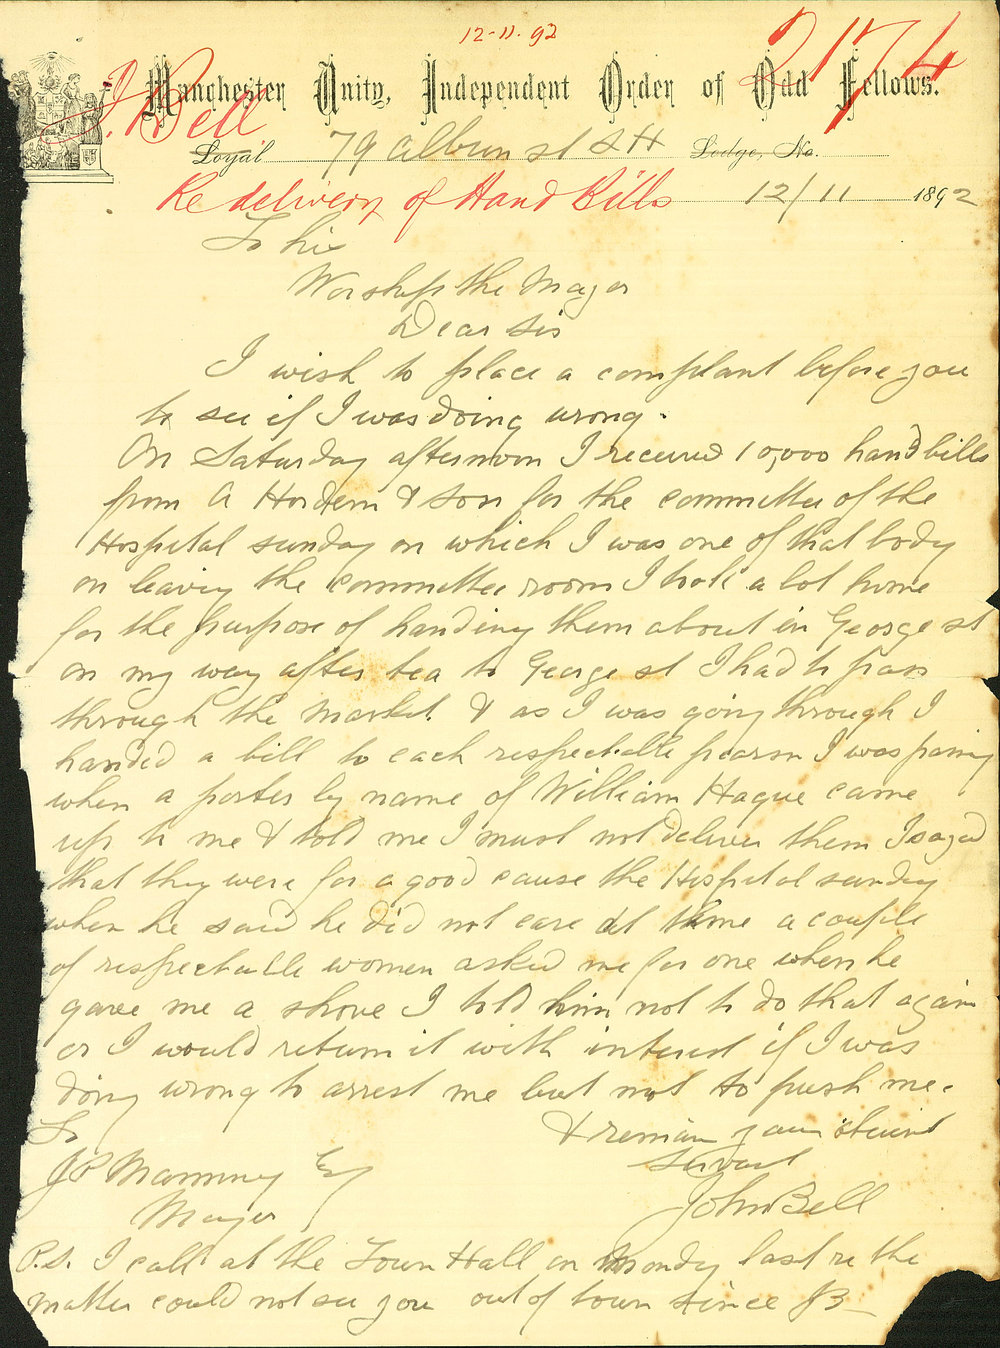 12-11. 92
2174
J. Bell
Manchester Unity, Independent Order of Odd Fellows.
Loyal 79 Albion st S H Lodge, No.
Re delivery of Hand Bills 12/11 1892
To his
Worship the Mayor
Dear Sir
I wish to place a complant before you
to see if I was doing wrong.
On Saturday afternoon I received 10,000 handbills
from A Hordern & Son for the committee of the
Hospital Sunday on which I was one of that body
on leaving the committee room I took a lot home
for the purpose of handing them about in George st
on my way after tea to George st I had to pass
through the Market & as I was going through I
handed a bill to each respectable pearson I was passing
when a porter by name of William Hague came
up to me & told me I must not deliver them I sayed
that they were for a good cause the Hospital sunday
when he said he did not care at time a couple
of respectable women asked me for one when he
gave me a shove I told him not to do that again
or I would return it with interest if I was
doing wrong to arrest me but not to push me.
I remain your obedient
Servant
John Bell
To
Manning Esq
Mayor
P.S. I call at the Town Hall on Monday last re the
matter could not see you out of town since JB